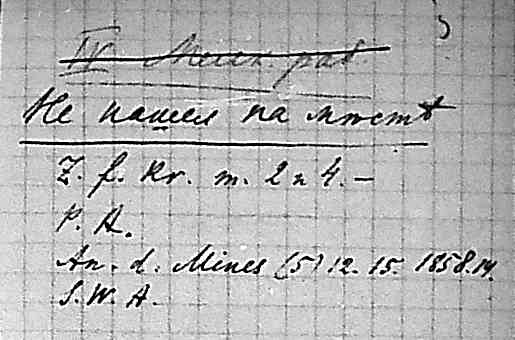 IV Мелк раб
Не нашел на мѣстѣ
Z. f. Kr. m. 2 и 4. —
P. A.
An. d. Mines (5) 12. 15. 1858. 14.
S. W. A.